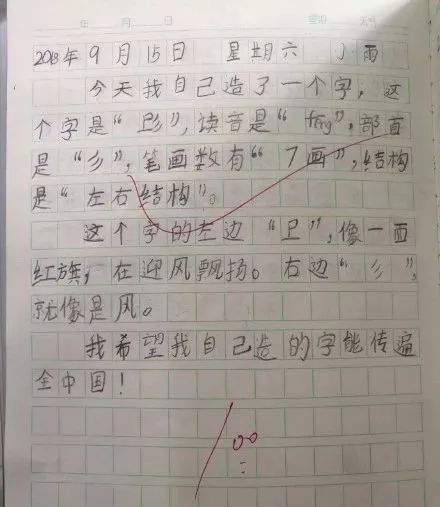 年 月 日
2018年9月15日 星期六 小雨
今天我自己造了一个字，这
个字是“
”，读音是“fēng”，部首
是“彡”，笔画数有“7画”，结构
是“左右结构”。
这个字的左边“
”，像一面
红旗，在迎风飘扬。右边“彡”，
就像是风。
我希望我自己造的字能传遍
全中国！
100